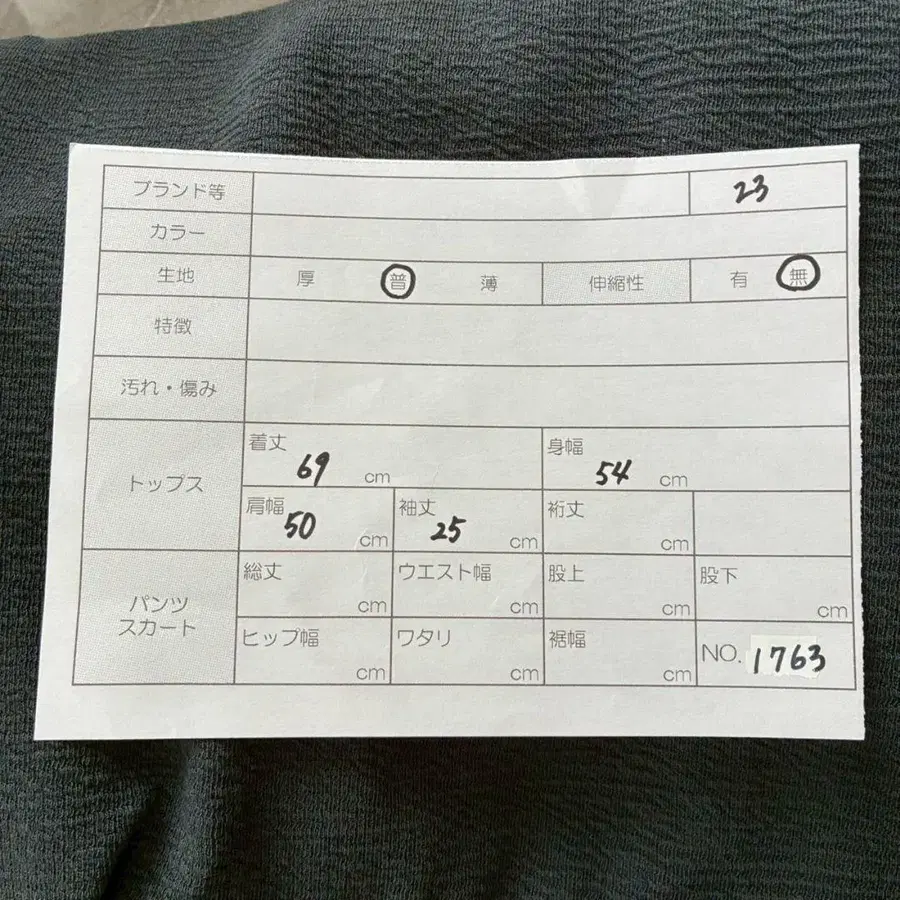 ブランド等 23
カラー
生地 厚 普 薄 伸縮性 有 無
特徴
汚れ・傷み
トップス
着丈 69 cm 身幅 54 cm
肩幅 50 cm 袖丈 25 cm 裄丈 cm
パンツ
スカート
総丈 cm ウエスト幅 cm 股上 cm 股下 cm
ヒップ幅 cm ワタリ cm 裾幅 cm NO. 1763